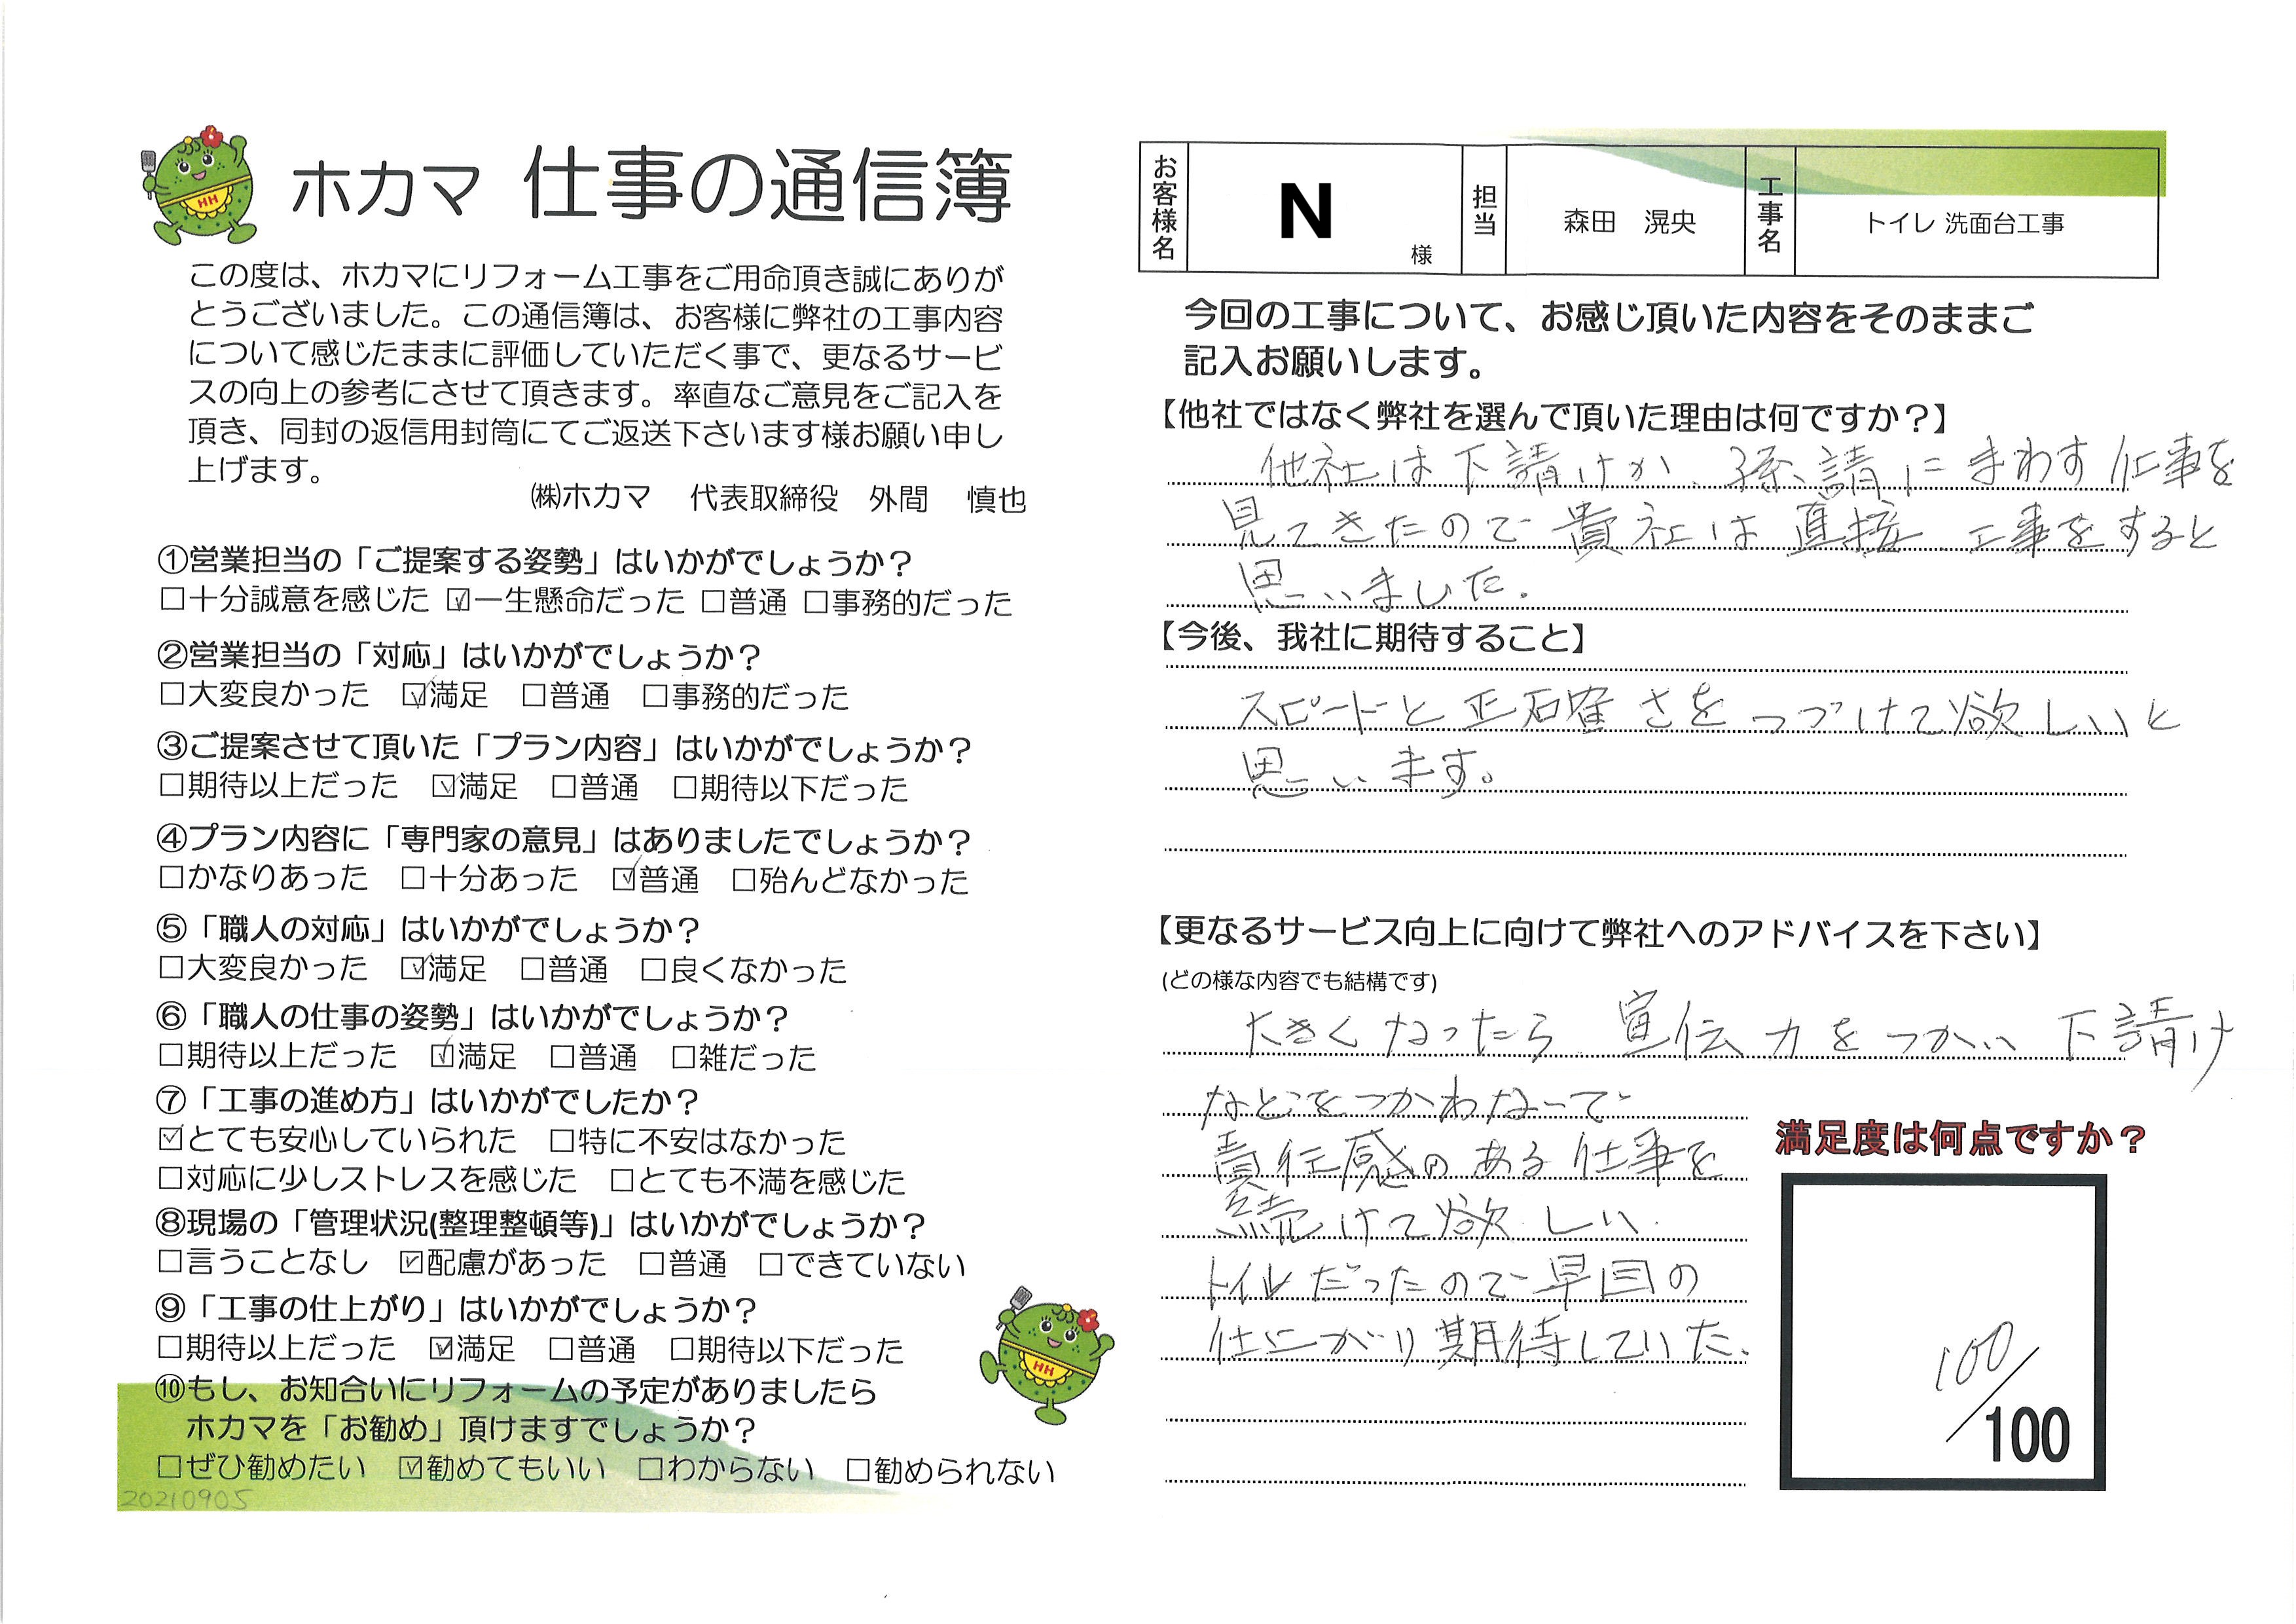 ホカマ 仕事の通信簿
この度は、ホカマにリフォーム工事をご用命頂き誠にありが
とうございました。この通信簿は、お客様に弊社の工事内容
について感じたままに評価していただく事で、更なるサービ
スの向上の参考にさせて頂きます。率直なご意見をご記入を
頂き、同封の返信用封筒にてご返送下さいます様お願い申し
上げます。
㈱ホカマ 代表取締役 外間 慎也
①営業担当の「ご提案する姿勢」はいかがでしょうか？
□十分誠意を感じた ☑一生懸命だった □普通 □事務的だった
②営業担当の「対応」はいかがでしょうか？
□大変良かった ☑満足 □普通 □事務的だった
③ご提案させて頂いた「プラン内容」はいかがでしょうか？
□期待以上だった ☑満足 □普通 □期待以下だった
④プラン内容に「専門家の意見」はありましたでしょうか？
□かなりあった □十分あった ☑普通 □殆んどなかった
⑤「職人の対応」はいかがでしょうか？
□大変良かった ☑満足 □普通 □良くなかった
⑥「職人の仕事の姿勢」はいかがでしょうか？
□期待以上だった ☑満足 □普通 □雑だった
⑦「工事の進め方」はいかがでしたか？
☑とても安心していられた □特に不安はなかった
□対応に少しストレスを感じた □とても不満を感じた
⑧現場の「管理状況(整理整頓等)」はいかがでしょうか？
□言うことなし ☑配慮があった □普通 □できていない
⑨「工事の仕上がり」はいかがでしょうか？
□期待以上だった ☑満足 □普通 □期待以下だった
⑩もし、お知合いにリフォームの予定がありましたら
ホカマを「お勧め」頂けますでしょうか？
□ぜひ勧めたい ☑勧めてもいい □わからない □勧められない
20210905
HH
HH
お客様名 N 様 担当 森田 滉央 工事名 トイレ 洗面台工事
今回の工事について、お感じ頂いた内容をそのままご
記入お願いします。
【他社ではなく弊社を選んで頂いた理由は何ですか？】
他社は下請けか、孫請にまわす仕事を
見てきたので貴社は直接、工事をすると
思いました.
【今後、我社に期待すること】
スピードと正確さをつづけて欲しいと
思います。
【更なるサービス向上に向けて弊社へのアドバイスを下さい】
(どの様な内容でも結構です)
大きくなったら 宣伝力をつかい 下請け
などをつかわなーで
責任感のある仕事を
続けて欲しい.
トイレだったので早目の
仕上がり期待していた.
満足度は何点ですか？
100/100